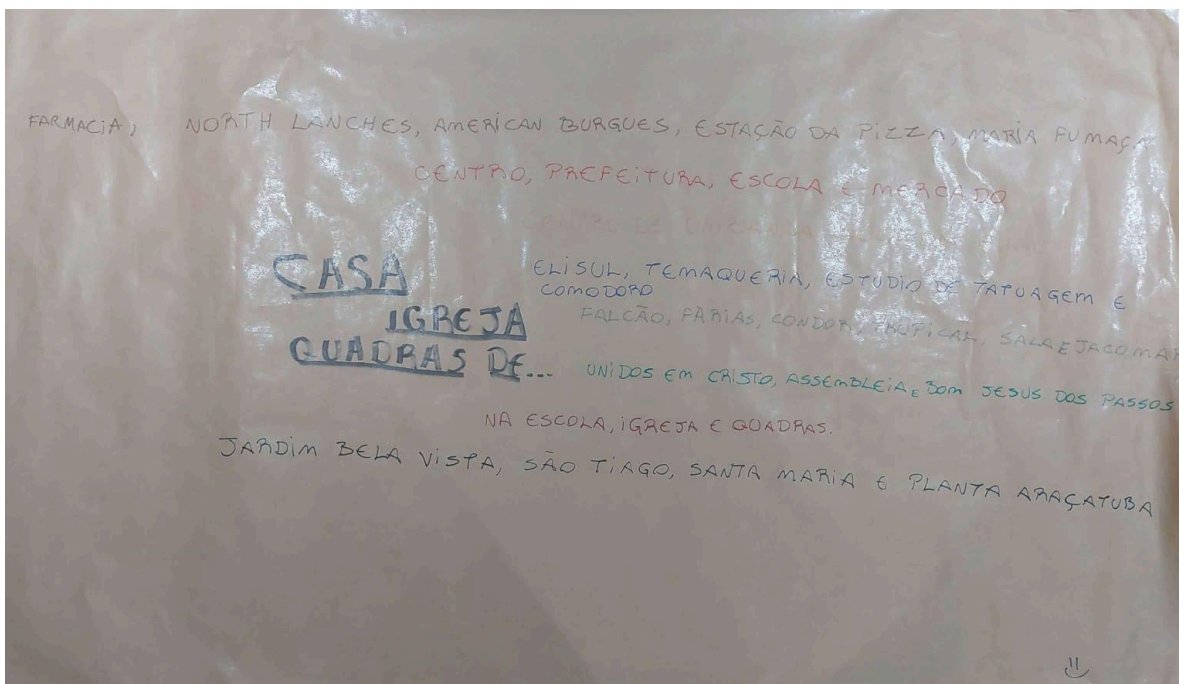 FARMACIA, NORTH LANCHES, AMERICAN BURGUES, ESTAÇÃO DA PIZZA, MARIA FUMAÇA
CENTRO, PREFEITURA, ESCOLA E MERCADO
CASA
ELISUL, TEMAQUERIA, ESTUDIO DE TATUAGEM E
COMODORO
IGREJA
FALCÃO, FARIAS, CONDOR, TROPICAL, SALA E JACOMAR
QUADRAS DE...
UNIDOS EM CRISTO, ASSEMBLEIA E BOM JESUS DOS PASSOS
NA ESCOLA, IGREJA E QUADRAS.
JARDIM BELA VISTA, SÃO TIAGO, SANTA MARIA E PLANTA ARAÇATUBA